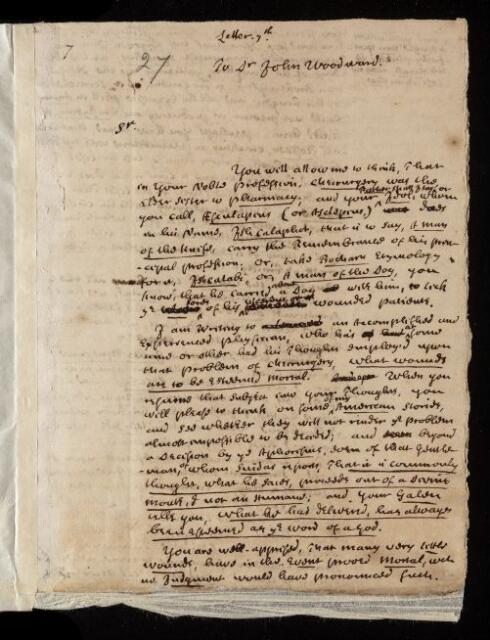 Letter. 7th
7
27
To Dr John Woodward.
Sr.
You will allow me to think, That
in your Noble Profession, Chirurgery was the
Elder Sister to Pharmacy; and your Idol, whom
you call, Æsculapius (or Asclepius)
in his Name, that is to say, A man
of the Knife, carry the Remembrance of his
profession; Or, take Bocharts Etymology
for it, or, A man of the Dog, you
know, that he carried a Dog with him, to lick
ye of his wounded patients.
I am writing to an Accomplished and
Experienced physician, who has at some
time or other had his Thoughts employ'd upon
that problem of Chirurgery, What wounds
are to be Esteemed Mortal. When you
resume that subject into your Thoughts, you
will please to think on some American Stories,
and see whether they will not render ye problem
almost impossible to be decided; and beyond
a Decision by ye Aphorisms, even of that Gentle-
man, of whom Suidas reports, That it is commonly
thought, what he said, proceeds out of a Divine
mouth, & not an Humane; and your Galen
tells you, What he has delivered, has always
been esteemed as ye word of a God.
You are well-apprised, That many very little
wounds, have in the Event proved Mortal, wch
no Judgment would have pronounced such.